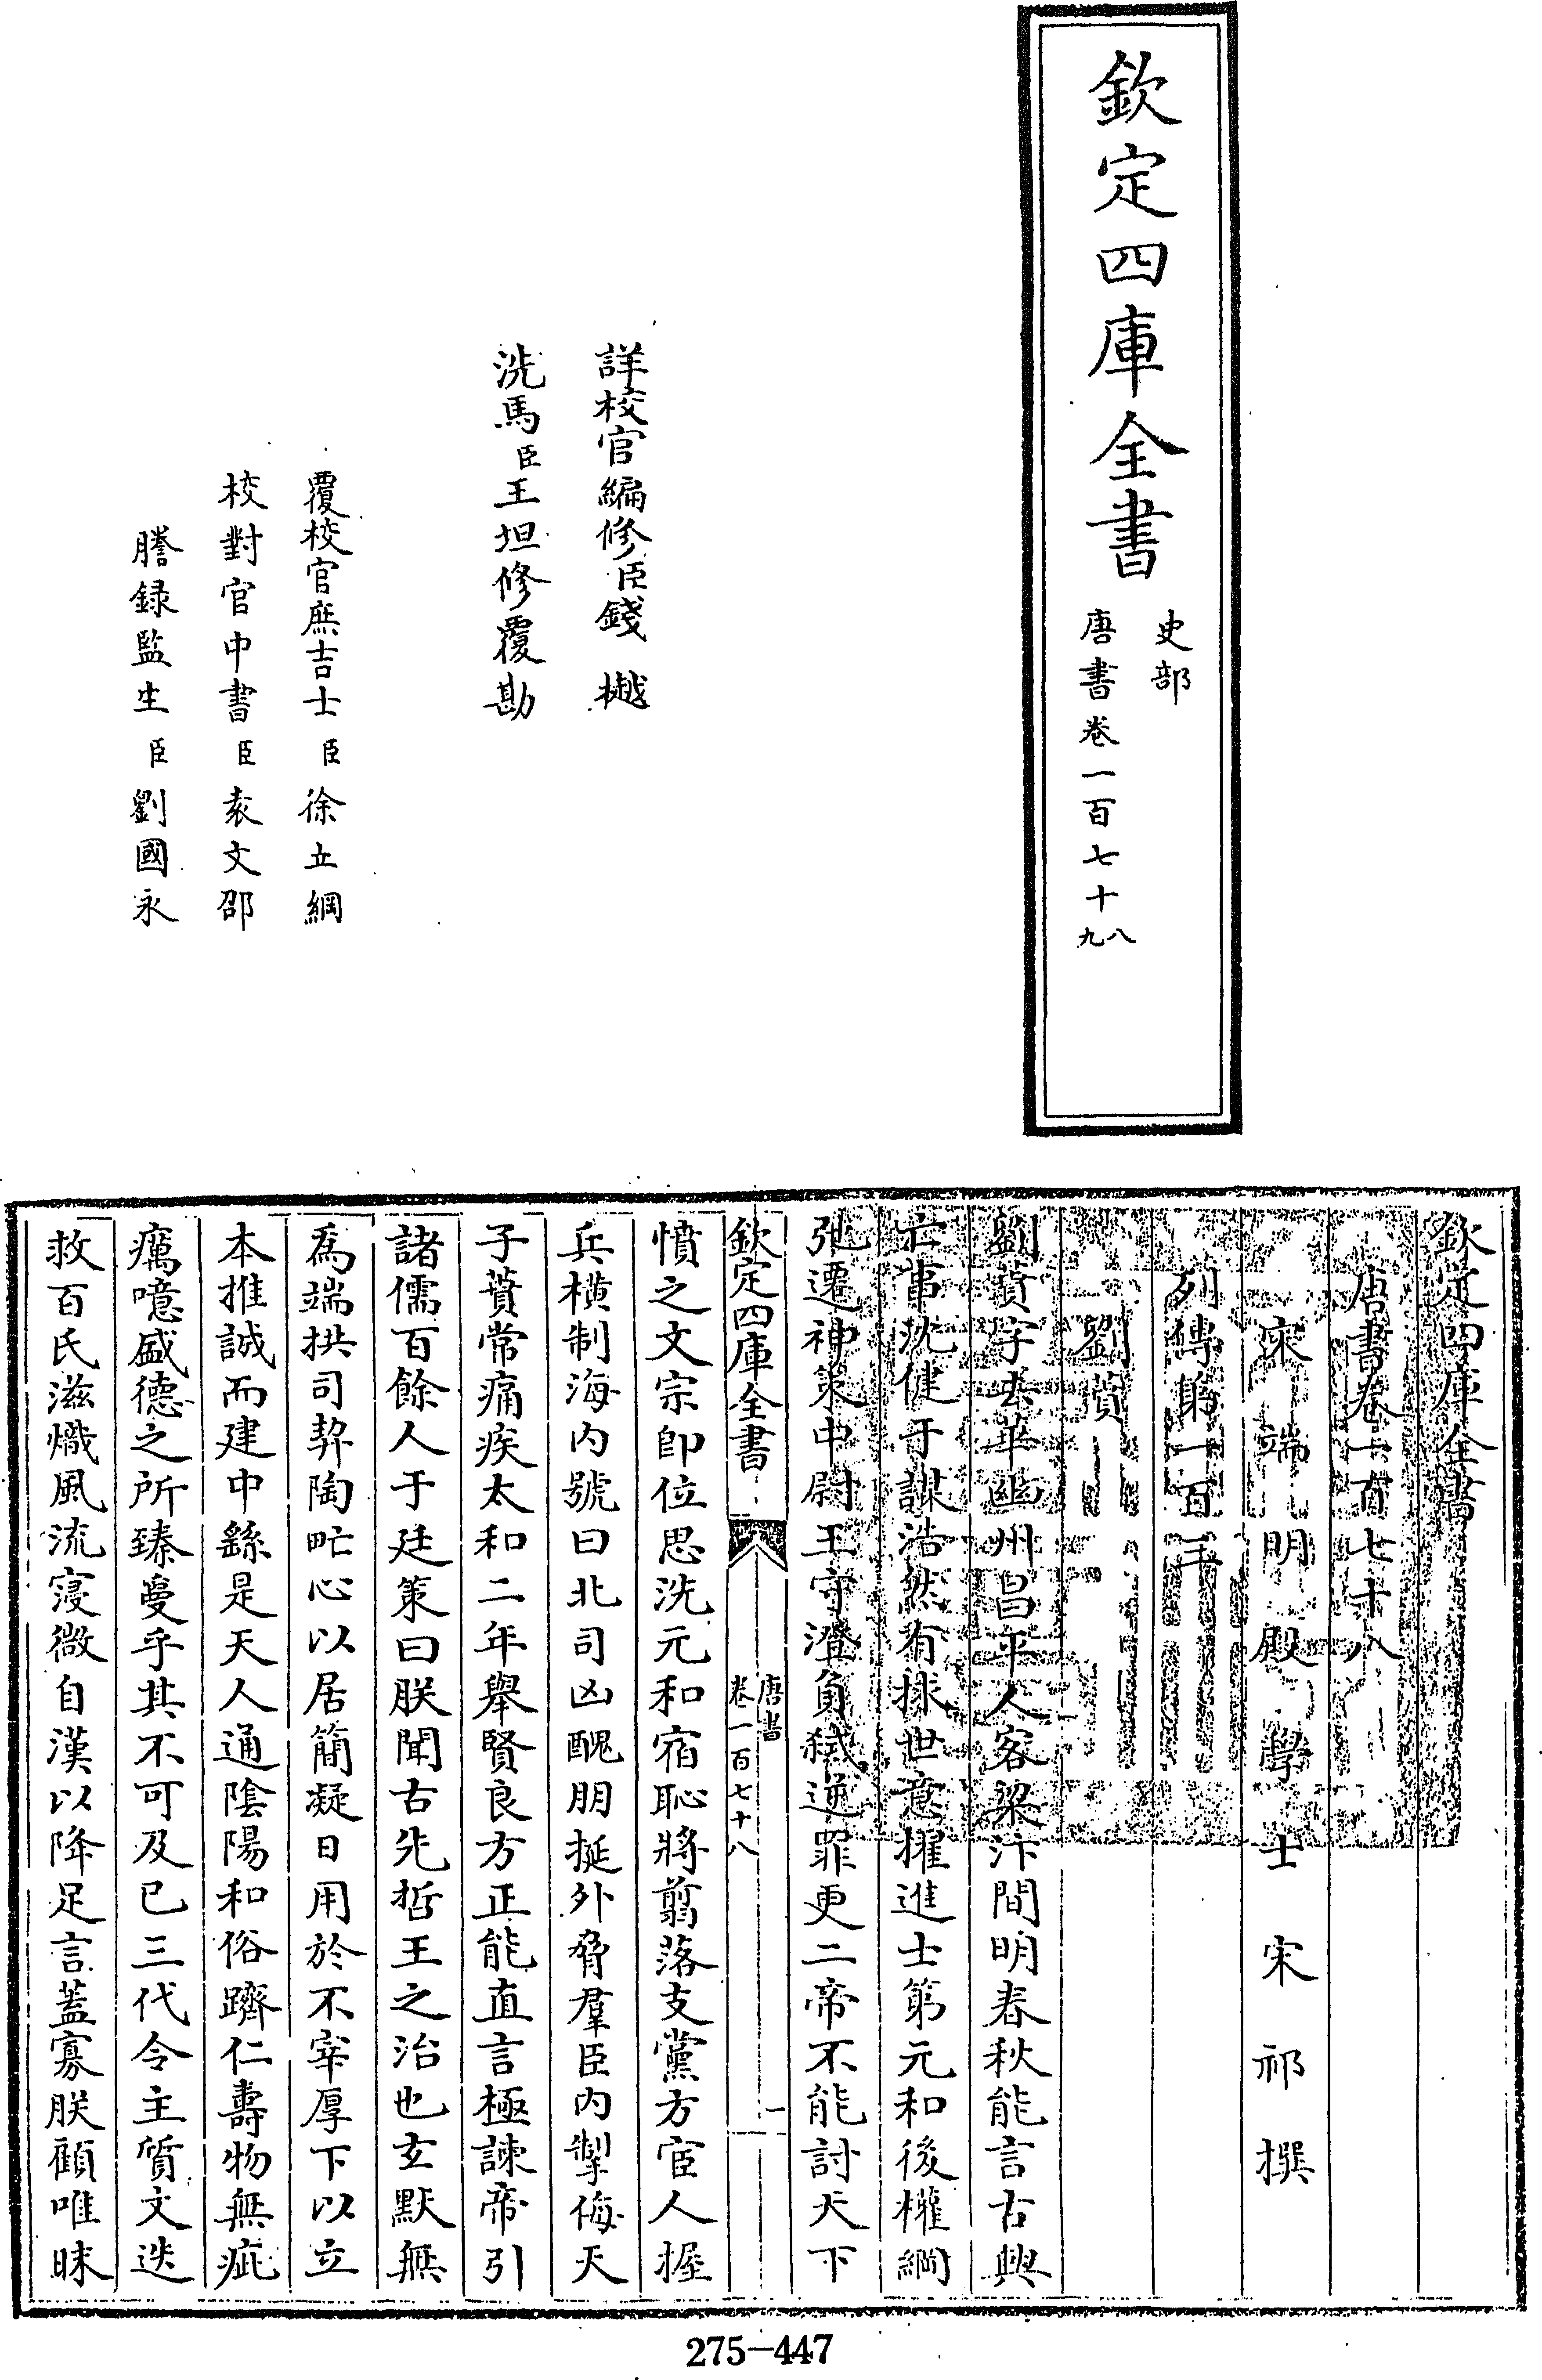 欽定四庫全書
史部
唐書卷一百七十八九
詳校官編修臣錢樾
洗馬臣王坦修覆勘
覆校官庶吉士臣徐立綱
校對官中書臣袁文邵
謄録監生臣劉國永
欽定四庫全書
唐書卷一百七十八
宋端明殿學士宋祁撰
列傳第一百三
劉蕡
劉蕡字去華幽州昌平人客梁汴間明春秋能言古興
亡事沈健于謀浩然有捄世意擢進士第元和後權綱
弛遷神策中尉王守澄負弑逆罪更二帝不能討天下
憤之文宗即位思洗元和宿恥將翦落支黨方宦人握
兵橫制海内號曰北司凶醜朋挻外脅羣臣内掣侮天
子蕡常痛疾太和二年舉賢良方正能直言極諫帝引
諸儒百餘人于廷策曰朕聞古先哲王之治也玄默無
為端拱司契陶甿心以居簡凝日用於不宰厚下以立
本推誠而建中繇是天人通隂陽和俗躋仁壽物無疵
癘噫盛德之所臻夐乎其不可及已三代令主質文迭
救百氏滋熾風流寖微自漢以降足言蓋寡朕顧唯昧
欽定四庫全書
唐書
卷一百七十八
一
275-447